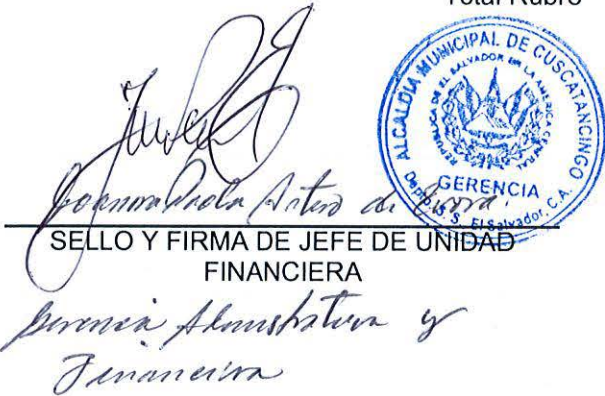 Total Rubro
ALCALDIA MUNICIPAL DE CUSCATANCINGO
REPUBLICA DE EL SALVADOR EN LA AMERICA CENTRAL
GERENCIA
Depto. S. S. El Salvador, C.A.
Paola Artero de
SELLO Y FIRMA DE JEFE DE UNIDAD
FINANCIERA
Gerencia Administrativa y
Financiera